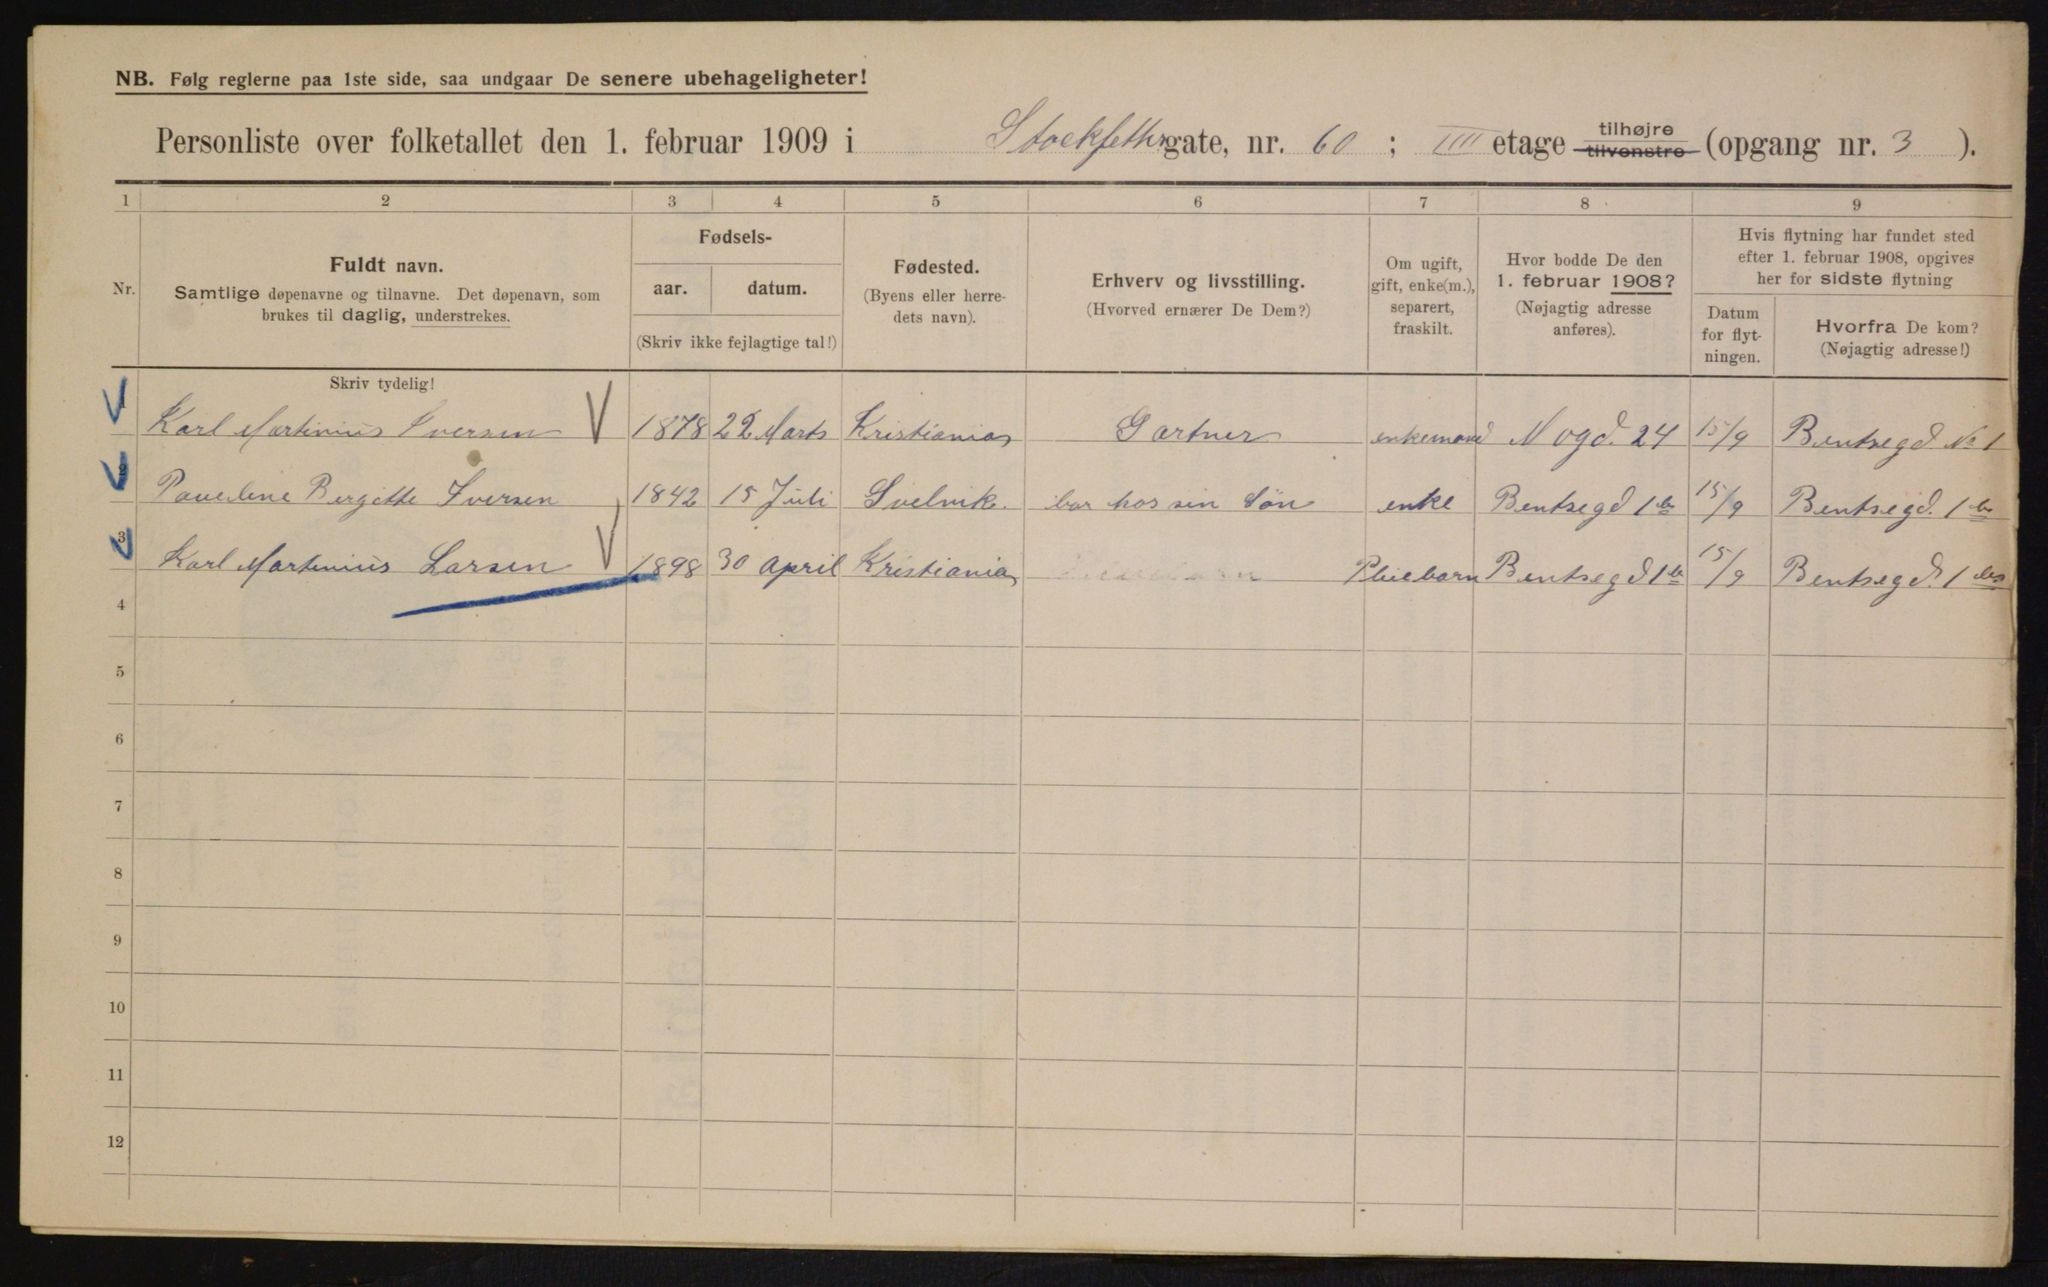 NB. Følg reglerne paa 1ste side, saa undgaar De senere ubehageligheter!
Personliste over folketallet den 1. februar 1909 i Stockflethsgate, nr. 60 ; IIII etage tilhøjre tilvenstre (opgang nr. 3 ).
1 2 3 4 5 6 7 8 9
Nr.
Fuldt navn.
Samtlige døpenavne og tilnavne. Det døpenavn, som
brukes til daglig, understrekes.
Skriv tydelig!
Fødsels-
aar. datum.
(Skriv ikke fejlagtige tal!)
Fødested.
(Byens eller herre-
dets navn).
Erhverv og livsstilling.
(Hvorved ernærer De Dem?)
Om ugift,
gift, enke(m.),
separert,
fraskilt.
Hvor bodde De den
1. februar 1908?
(Nøjagtig adresse
anføres).
Hvis flytning har fundet sted
efter 1. februar 1908, opgives
her for sidste flytning
Datum
for flyt-
ningen.
Hvorfra De kom?
(Nøjagtig adresse!)
1 Karl Martinius Iversen 1878 22 Marts Kristiania Gartner enkemand Nogd. 24 15/9 Bentsegd. No 1
2 Pauline Bergitte Iversen 1842 15 Juli Svelvik. bor hos sin Søn enke Bentsegd 1 b 15/9 Bentsegd. 1 b
3 Karl Martinius Larsen 1898 30 April Kristiania Pleiebarn Bentsegd 1 b 15/9 Bentsegd. 1
4
5
6
7
8
9
10
11
12